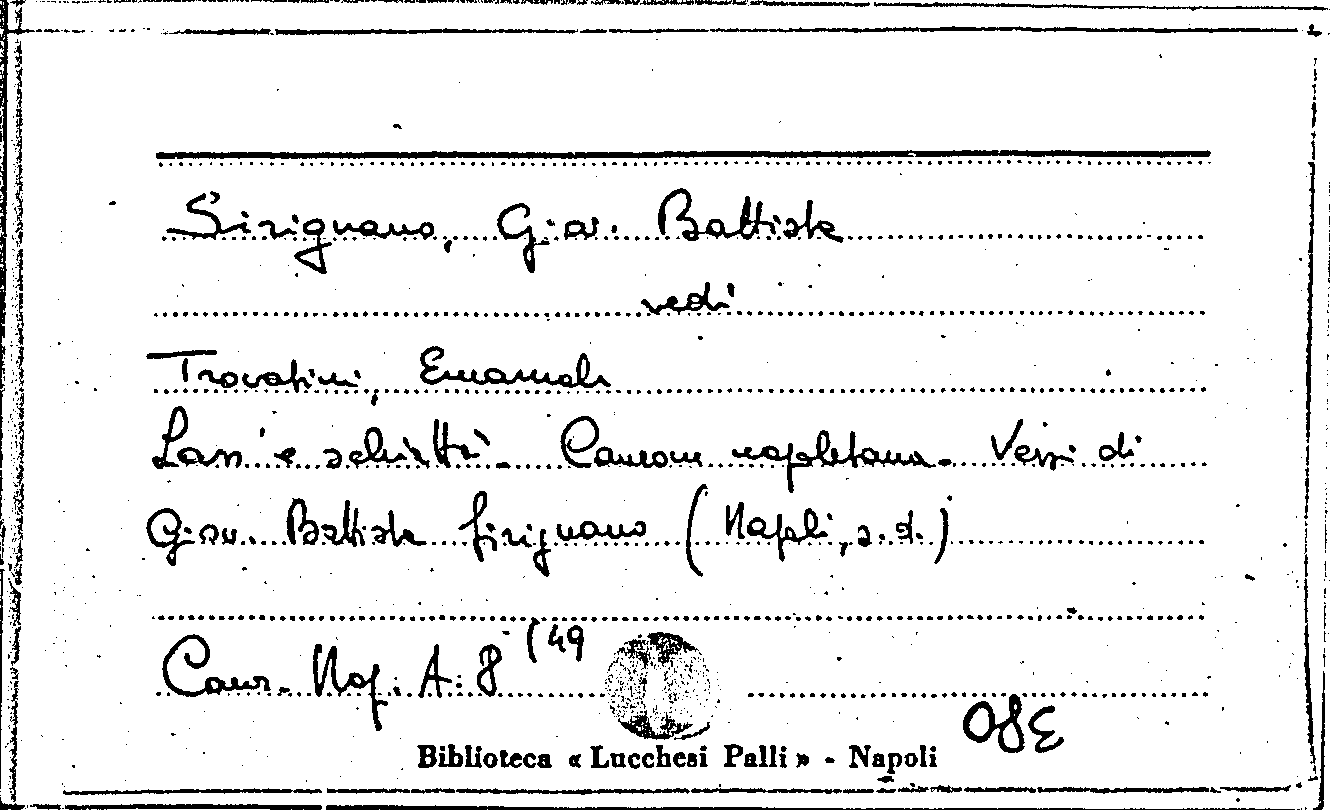 Sirignano, Giov. Battista
vedi
Trovatini, Emanuele
Lass' e schitti. Canzone napoletana. Versi di
Giov. Battista Sirignano (Napoli, s. d.)
Canz. Nap. A. 8 (49
Biblioteca « Lucchesi Palli » - Napoli